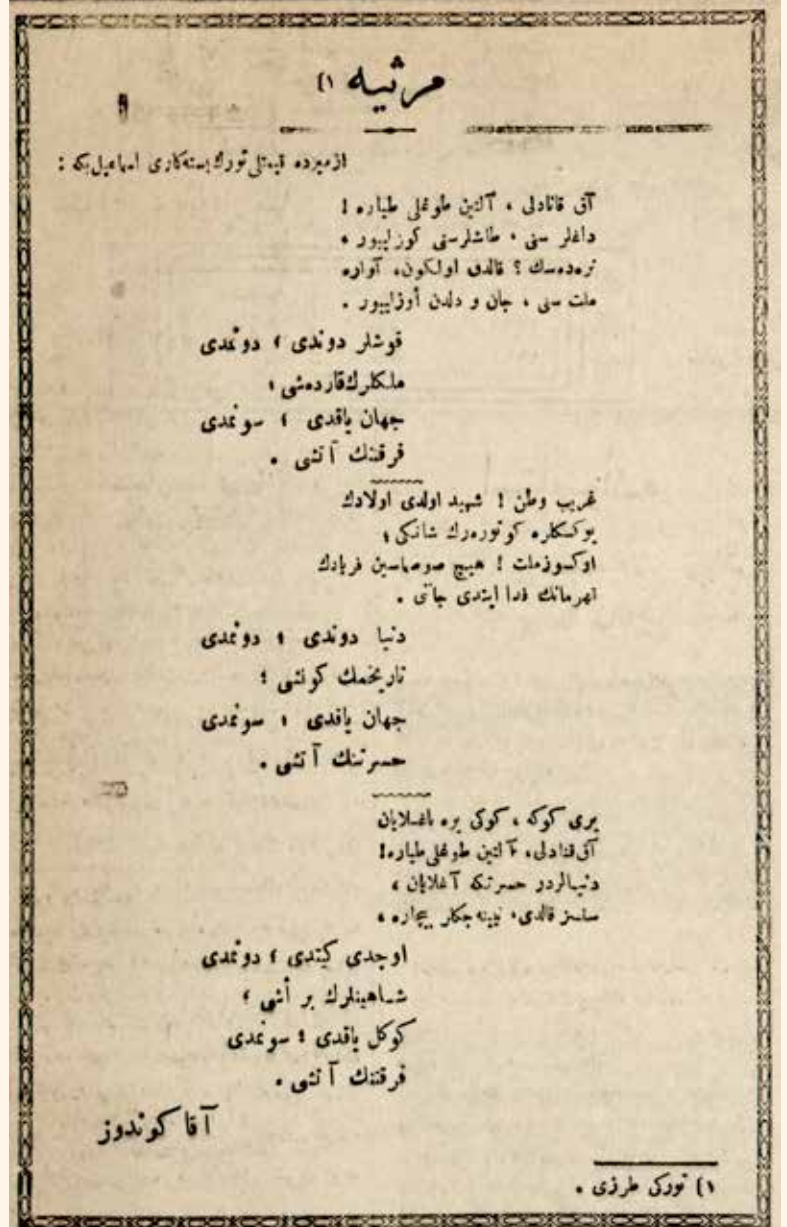 مرثیه (١
ازمیرده قیمتلی تورك بسته‌کاری اسماعیل بكه :
آق قانادلی ، آلتین طوغلی طیاره !
داغلر سنی ، طاشلر سنی کوزلییور ،
نره‌ده‌سك ؟ قالدق اولکون، آواره
ملت سنی ، جان و دلدن أوزلییور .
قوشلر دوندی ؛ دونمدی
ملكلرك قارده‌شی ؛
جهان یاقدی ؛ سونمدی
فرقتك آتشی .
غریب وطن ! شهید اولدی اولادك
یوکسکلره کوتوره‌رك شانکی ؛
اوکسوز ملت ! هیچ صوصماسین فریادك
قهرمانك فدا ایتدی جانی .
دنیا دوندی ؛ دونمدی
تاریخمك کونشی ؛
جهان یاقدی ؛ سونمدی
حسرتنك آتشی .
یری کوکه ، کوکی یره باغلایان
آق قنادلی، آلتین طوغلی طیاره!
دنیالردر حسرتکه آغلایان ،
سنسز قالدی، نیینه‌جکلر بیچاره ،
اوچدی کیتدی ؛ دونمدی
شاهینلرك بر أشی ؛
کوکل یاقدی ؛ سونمدی
فرقتنك آتشی .
آقا کوندوز
١) تورکی طرزی .